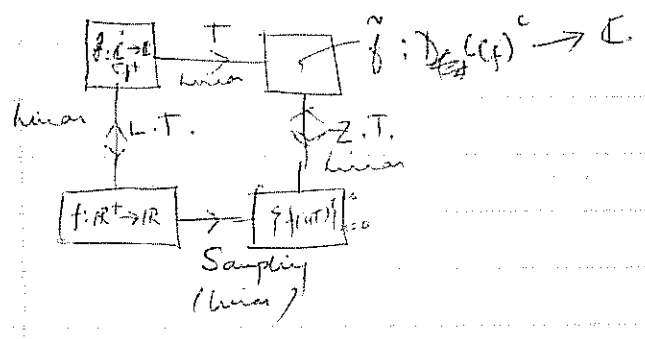 T
Linear
f̃ : D C(f)ᶜ → ℂ.
Linear
L.T.
Z.T.
Linear
f: ℝ⁺→ℝ
{f(nT)}
Sampling
(linear)